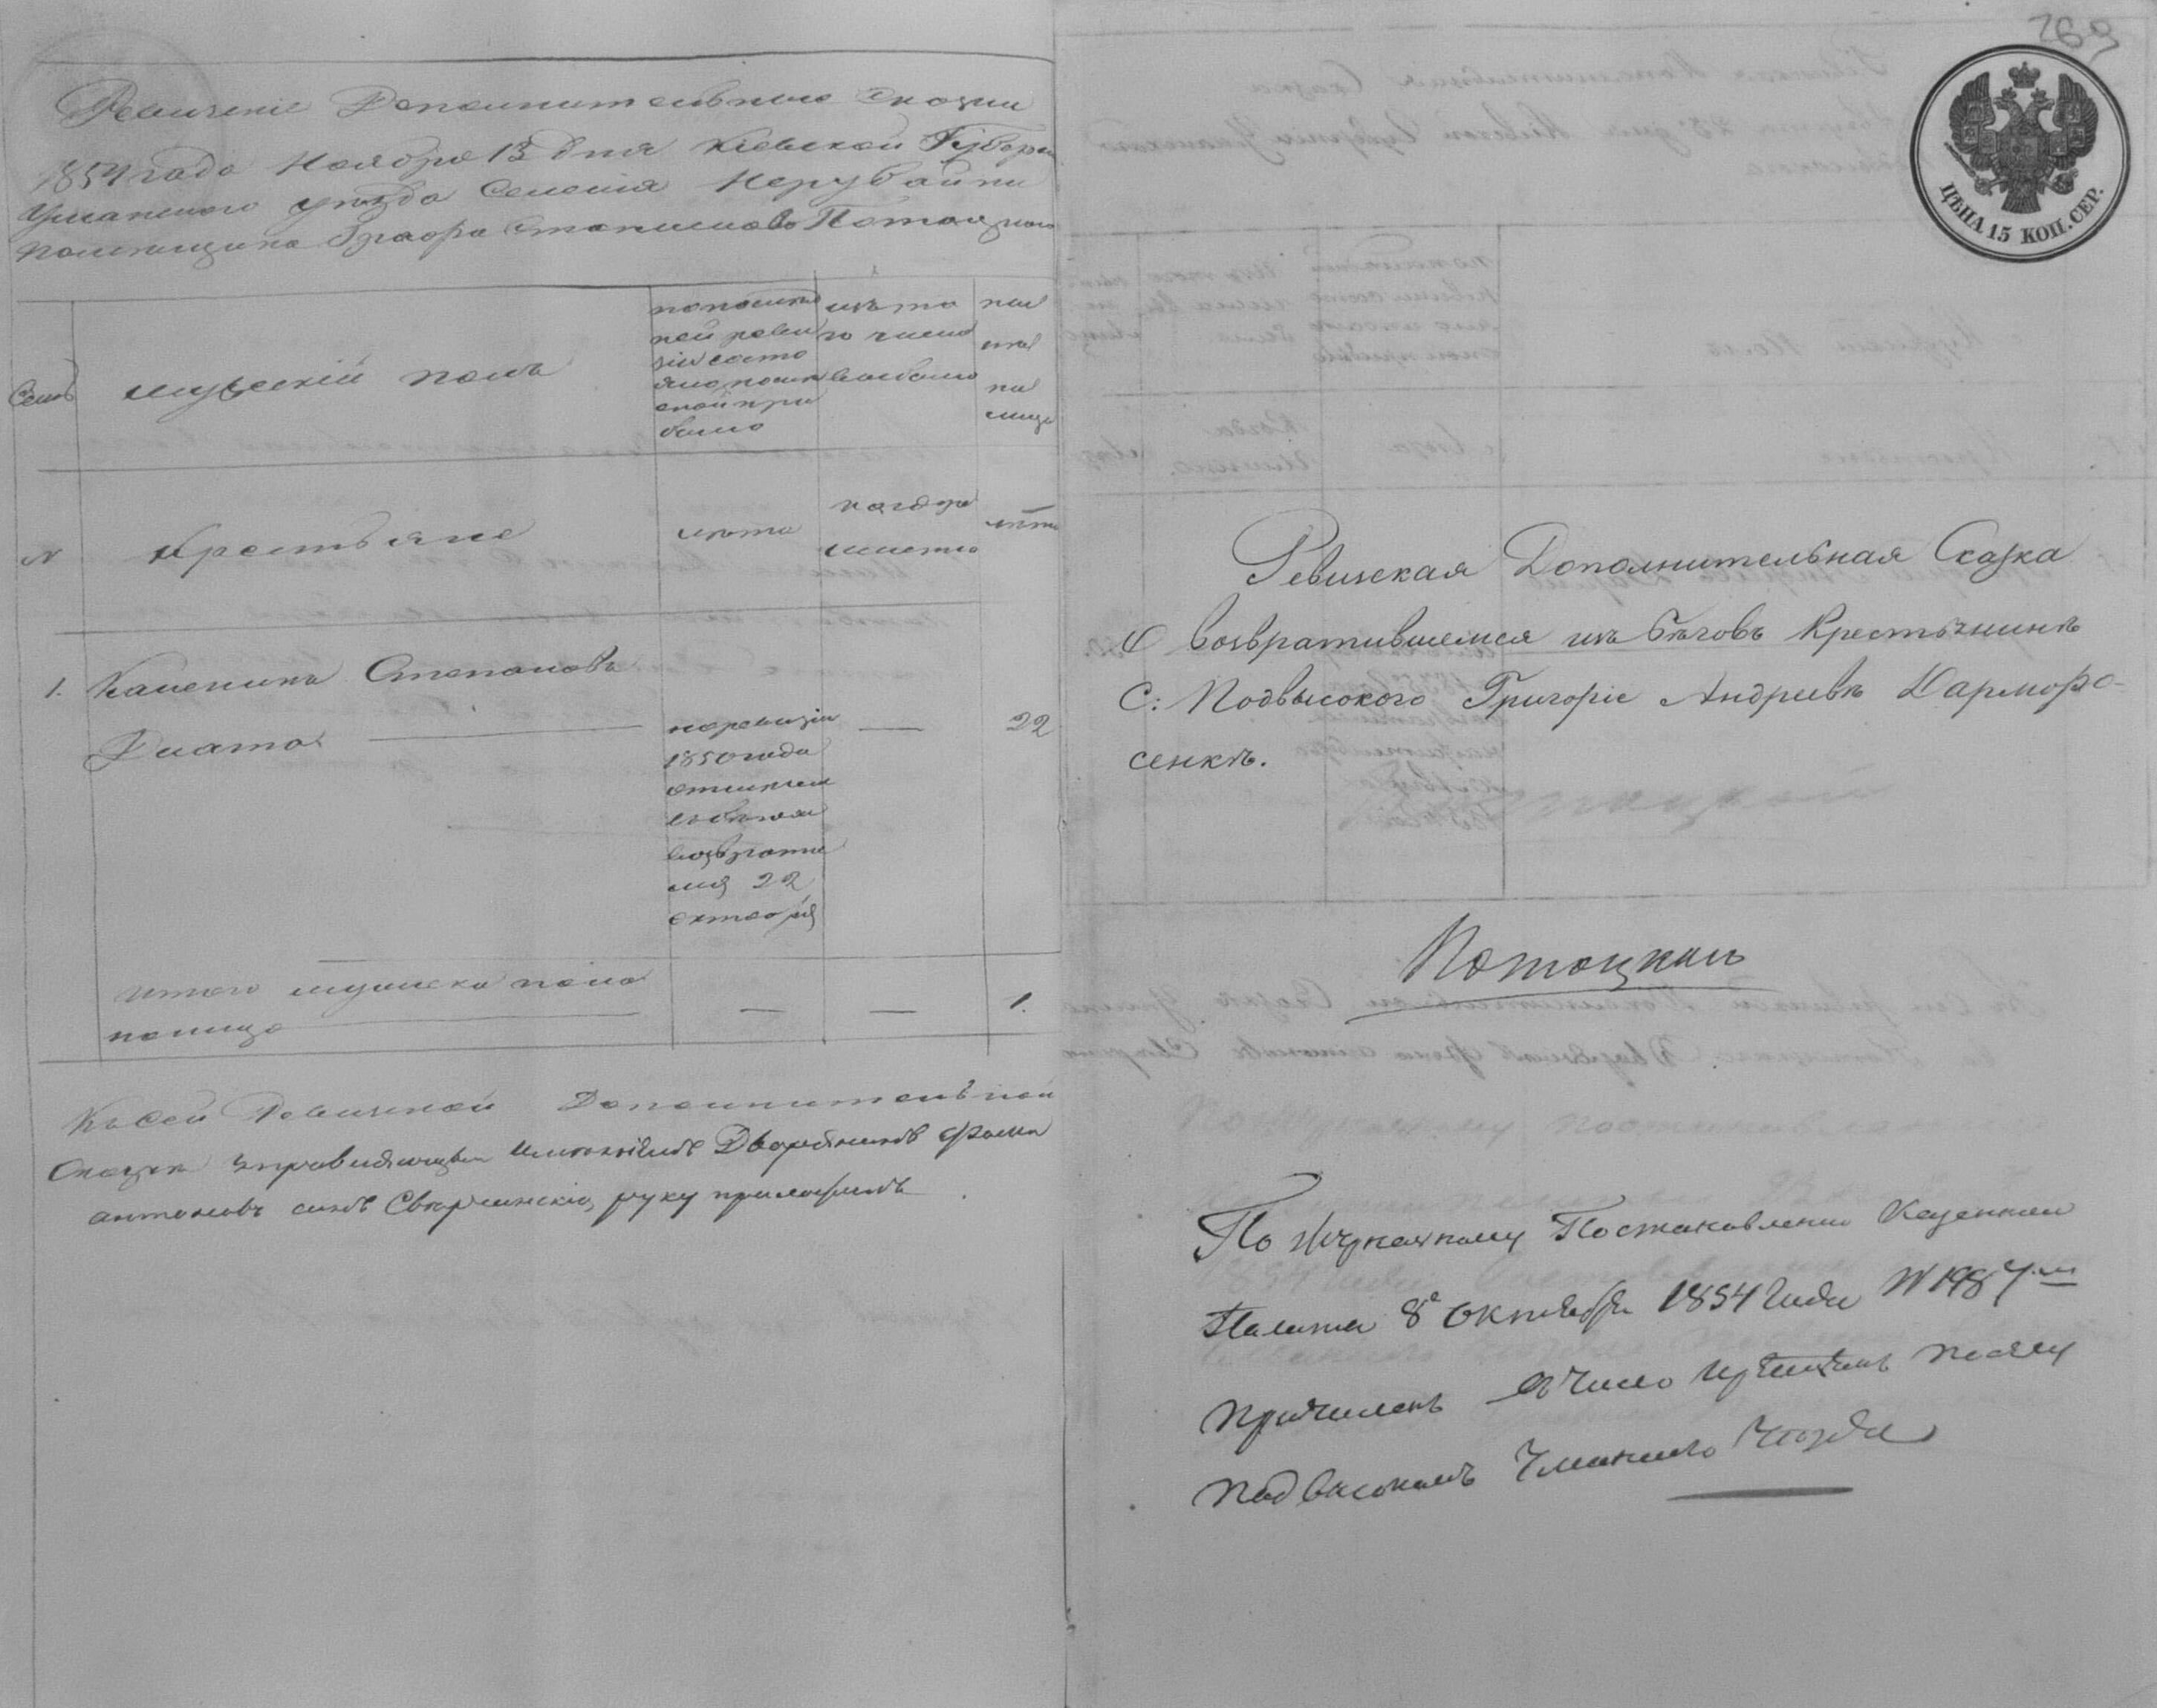 Ревизскіе Дополнительные Сказки
1854 года Ноября 13 дня Кіевской Губерніи
Уманского уезда Селенія Нерубайки
помещика Графа Станислава Потоцкого
Семьи
мужескій полъ
по послед
ней реви
зіи состо
яло и после
оной при
было
изъ то
го числа
выбыло
ны
не
на
лицо
N
Крестьяне
лета
когда
именно
лета
1. Каленикъ Степановъ
—
по ревизіи
1850 года
отписан
въ бегах
возврати
лся 22
октября
—
22
итого мужеска пола
на лицо
—
—
1.
Къ сей Ревизкой Дополнительной
Сказки управляющій имениемъ Дворянинъ Фома
Антоновъ сынъ руку приложилъ
269
ЦѢНА 15 КОП. СЕР.
Ревизская Дополнительная Сказка
О возвратившемся изъ бѣговъ Крестьянинѣ
С: Подвысокого Григоріе Андриевѣ Дарморо-
сенкѣ.
По журналному Постановленію Казенной
Палаты 8 Октября 1854 Года N 1987
Причисленъ въ число Крестьянъ по селу
Подвысокомъ Уманского Уезда